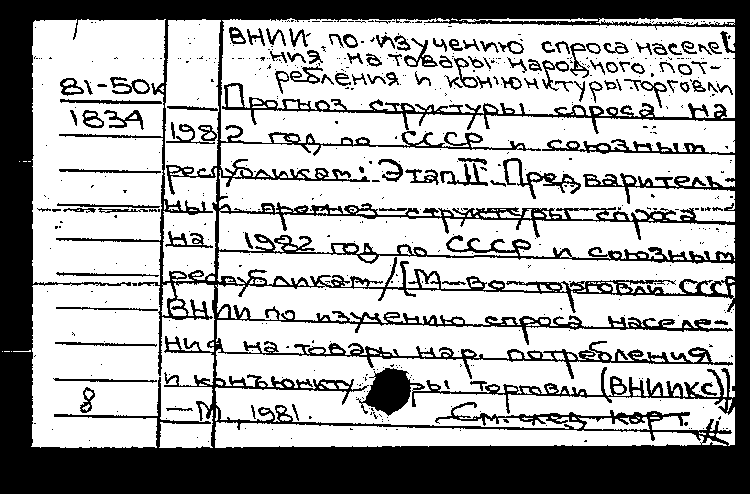 ВНИИ по изучению спроса населе-
ния на товары народного пот-
ребления и конъюнктуры торговли
81-50к
1834
Прогноз структуры спроса на
1982 год по СССР и союзным
республикам: Этап II. Предваритель-
ный прогноз структуры спроса
на 1982 год по СССР и союзным
республикам / [М-во торговли СССР,
ВНИИ по изучению спроса населе-
ния на товары нар. потребления
и конъюнкту ры торговли (ВНИИКС)].
8
— М., 1981. См. след. карт.